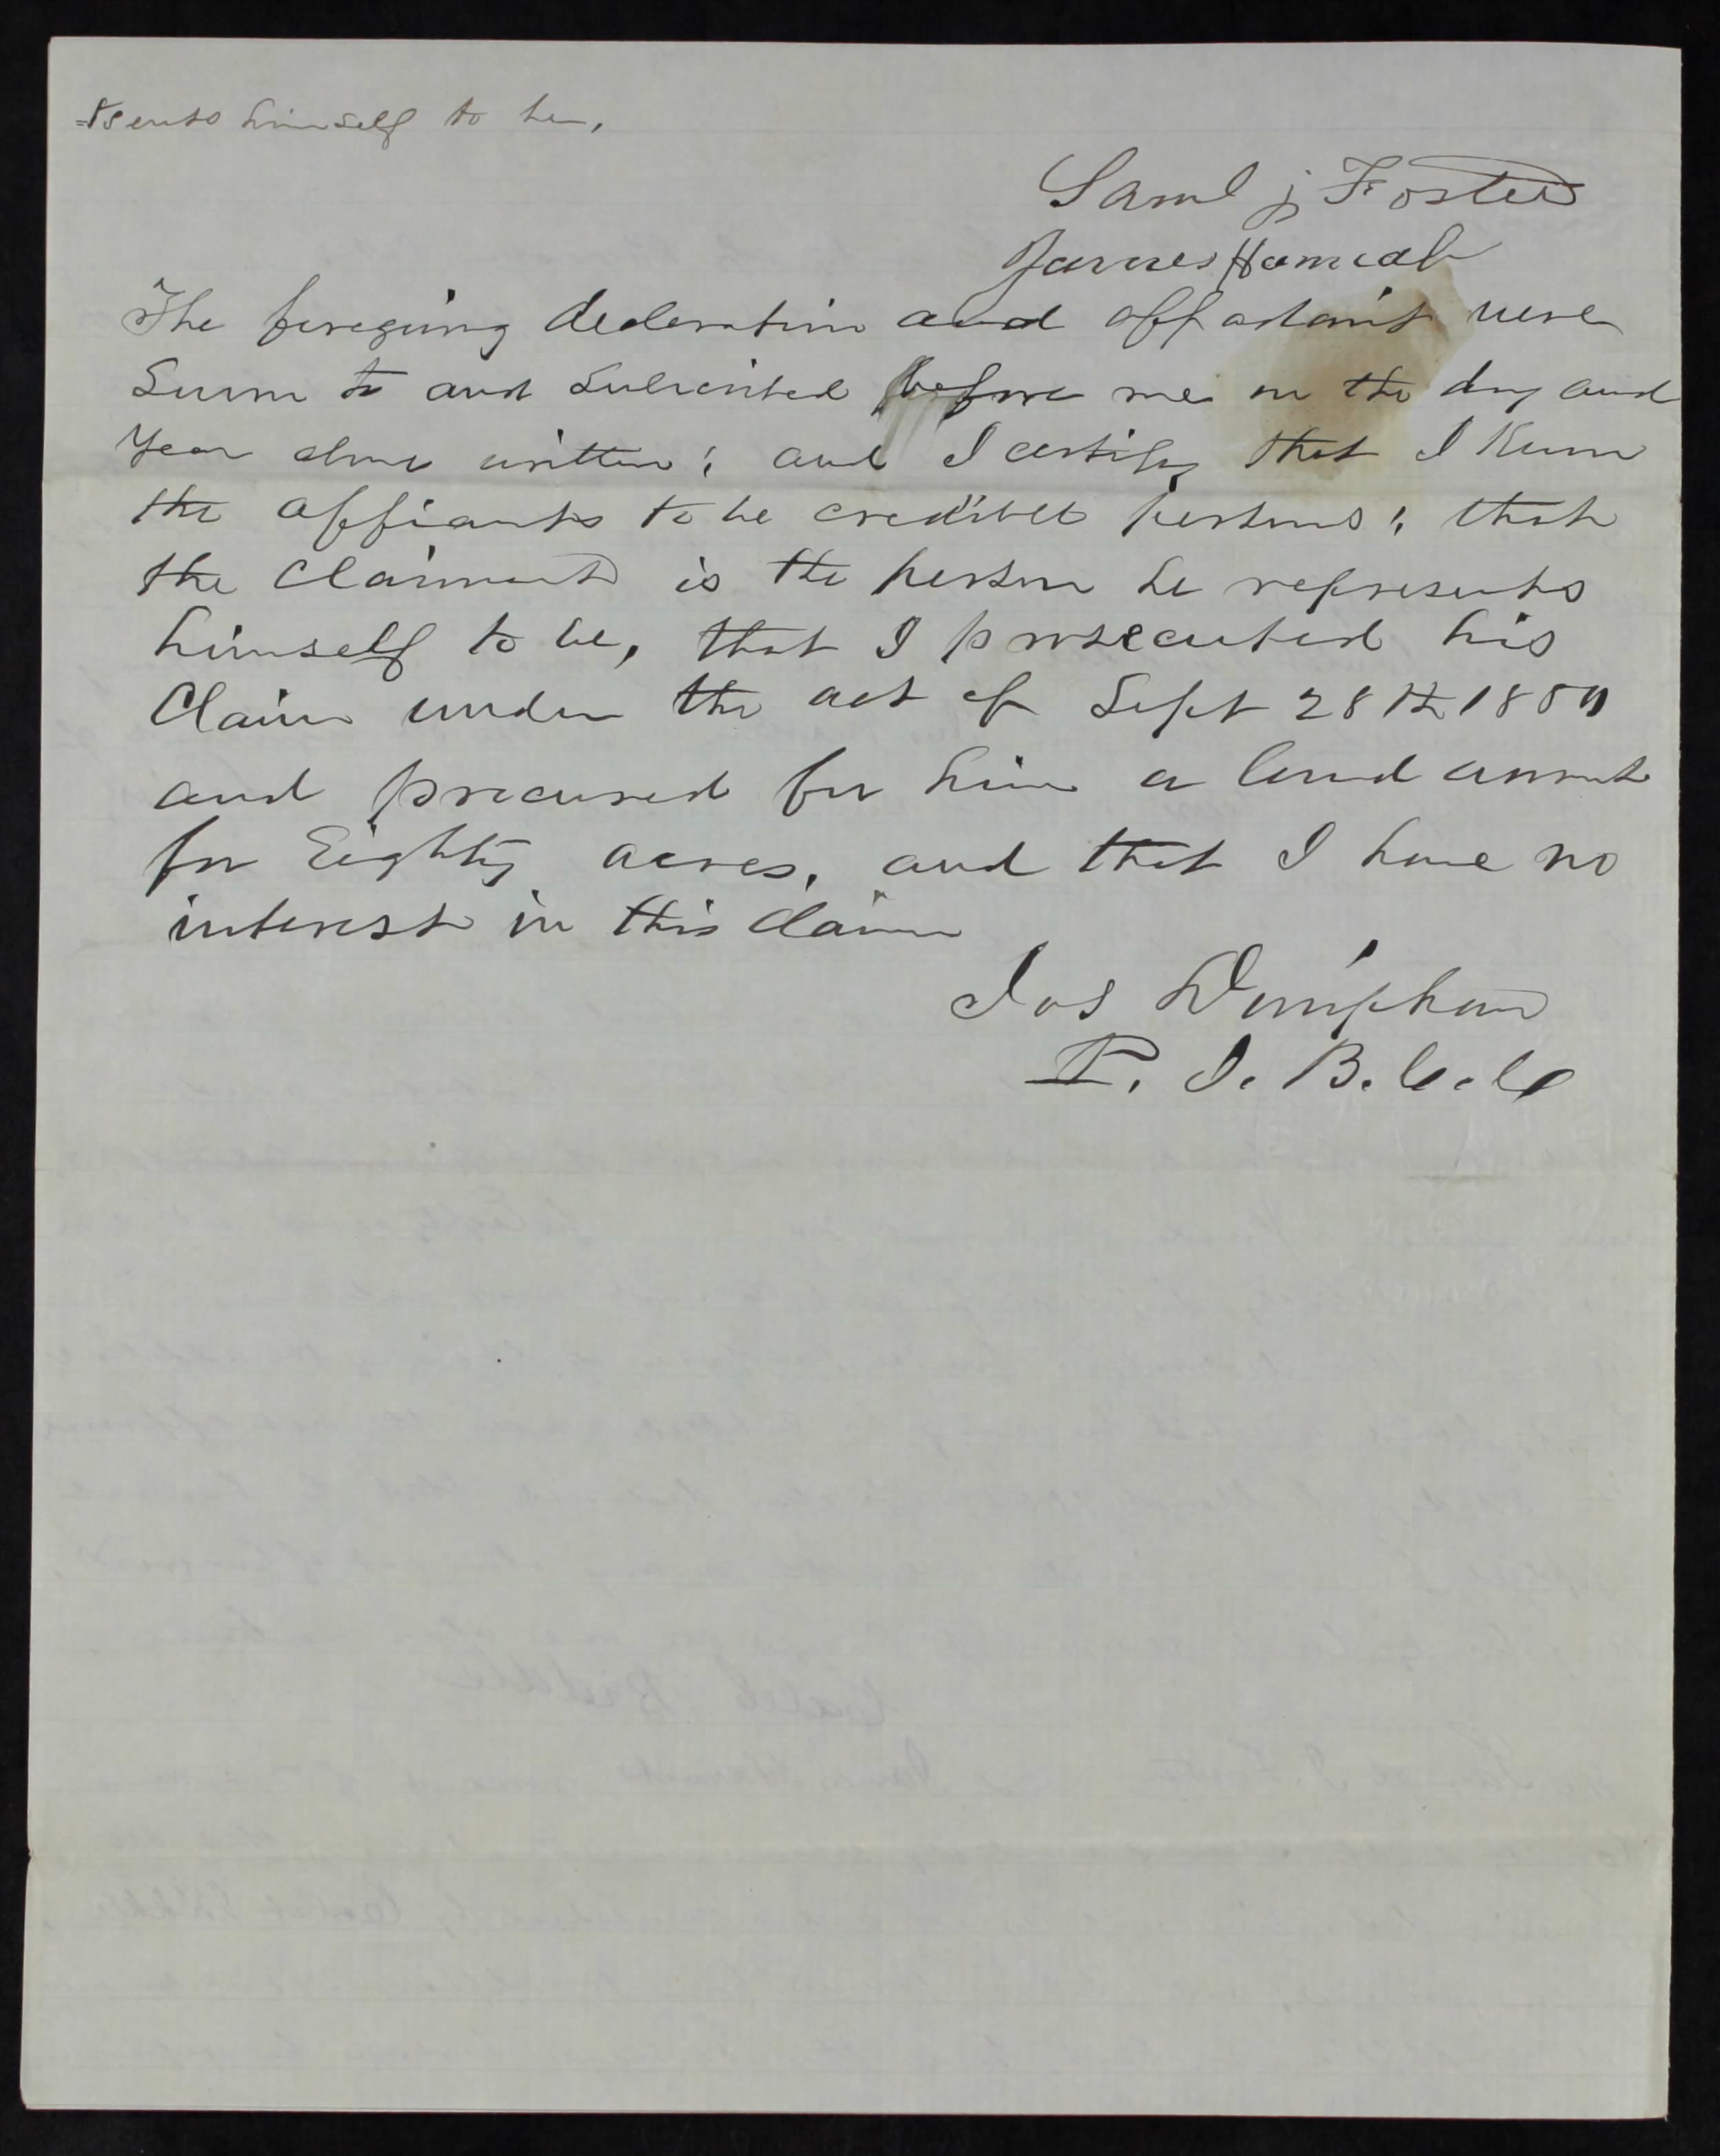 =sents himself to be,
Saml j Foster
James Hamcah
The foregoing declaration and affadavit were
Sworn to and Subscribed before me on the day and
Year above written; and I certify that I Know
the affiants to be credible persons; that
the Claimant is the person he represents
himself to be, that I prosecuted his
Claim under the act of Sept 28th 1850
and procured for him a land warrant
for Eighty acres, and that I have no
interest in this claim
Jos Doniphan
P. J. B. C. C.